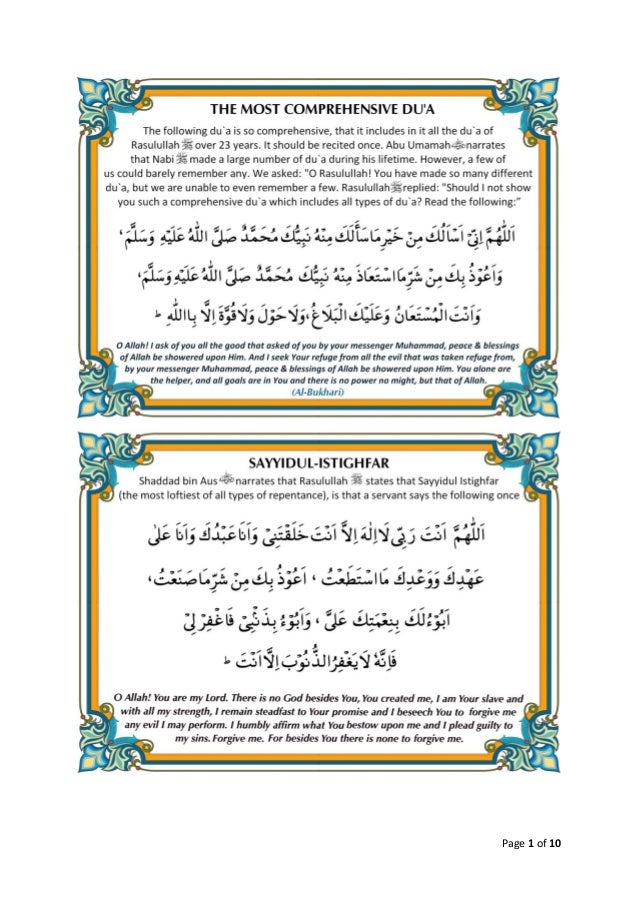 THE MOST COMPREHENSIVE DU'A
The following du`a is so comprehensive, that it includes in it all the du`a of
Rasulullah ﷺ over 23 years. It should be recited once. Abu Umamah narrates
that Nabi ﷺ made a large number of du`a during his lifetime. However, a few of
us could barely remember any. We asked: "O Rasulullah! You have made so many different
du`a, but we are unable to even remember a few. Rasulullah ﷺ replied: "Should I not show
you such a comprehensive du`a which includes all types of du`a? Read the following:"
اَللّٰهُمَّ اِنِّیْ اَسْأَلُكَ مِنْ خَيْرِ مَا سَأَلَكَ مِنْهُ نَبِيُّكَ مُحَمَّدٌ صَلَّی اللّٰهُ عَلَيْهِ وَسَلَّمَ ،
وَاَعُوْذُ بِكَ مِنْ شَرِّ مَا اسْتَعَاذَ مِنْهُ نَبِيُّكَ مُحَمَّدٌ صَلَّی اللّٰهُ عَلَيْهِ وَسَلَّمَ ،
وَاَنْتَ الْمُسْتَعَانُ وَعَلَيْكَ الْبَلَاغُ ، وَلَا حَوْلَ وَلَا قُوَّةَ اِلَّا بِااللّٰهِ ط
O Allah! I ask of you all the good that asked of you by your messenger Muhammad, peace & blessings
of Allah be showered upon Him. And I seek Your refuge from all the evil that was taken refuge from,
by your messenger Muhammad, peace & blessings of Allah be showered upon Him. You alone are
the helper, and all goals are in You and there is no power no might, but that of Allah.
(Al-Bukhari)
SAYYIDUL-ISTIGHFAR
Shaddad bin Aus narrates that Rasulullah ﷺ states that Sayyidul Istighfar
(the most loftiest of all types of repentance), is that a servant says the following once
اَللّٰهُمَّ اَنْتَ رَبِّیْ لَا اِلٰهَ اِلَّا اَنْتَ خَلَقْتَنِیْ وَاَنَا عَبْدُكَ وَاَنَا عَلٰی
عَهْدِكَ وَوَعْدِكَ مَا اسْتَطَعْتُ ، اَعُوْذُ بِكَ مِنْ شَرِّ مَا صَنَعْتُ ،
اَبُوْءُ لَكَ بِنِعْمَتِكَ عَلَیَّ ، وَاَبُوْءُ بِذَنْۢبِیْ فَاغْفِرْ لِیْ
فَاِنَّهٗ لَا يَغْفِرُ الذُّنُوْبَ اِلَّا اَنْتَ ط
O Allah! You are my Lord. There is no God besides You, You created me, I am Your slave and
with all my strength, I remain steadfast to Your promise and I beseech You to forgive me
any evil I may perform. I humbly affirm what You bestow upon me and I plead guilty to
my sins. Forgive me. For besides You there is none to forgive me.
Page 1 of 10